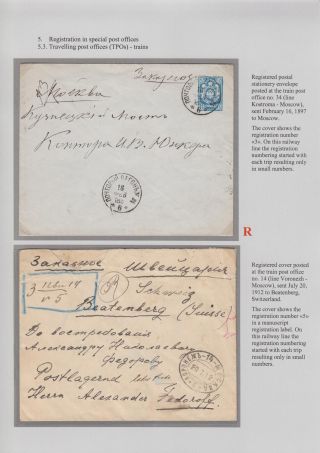 5. Registration in special post offices
5.3. Travelling post offices (TPOs) - trains
Заказное
Москва
Кузнецкий Мостъ
Контора И.В. Юнкера
Registered postal
stationery envelope
posted at the train post
office no. 34 (line
Kostroma - Moscow),
sent February 16, 1897
to Moscow.
The cover shows the
registration number
«3». On this railway
line the registration
numbering started with
each trip resulting only
in small numbers.
R
Заказное
Швейцария
3
№ 5
Schweiz
Beatenberg (Suisse)
До востребования
Александру Николаевичу
Федорову
Postlagernd
Herrn Alexander Fedoroff
Registered cover posted
at the train post office
no. 14 (line Voronezh -
Moscow), sent July 20,
1912 to Beatenberg,
Switzerland.
The cover shows the
registration number «5»
in a manuscript
registration label. On
this railway line the
registration numbering
started with each trip
resulting only in small
numbers.